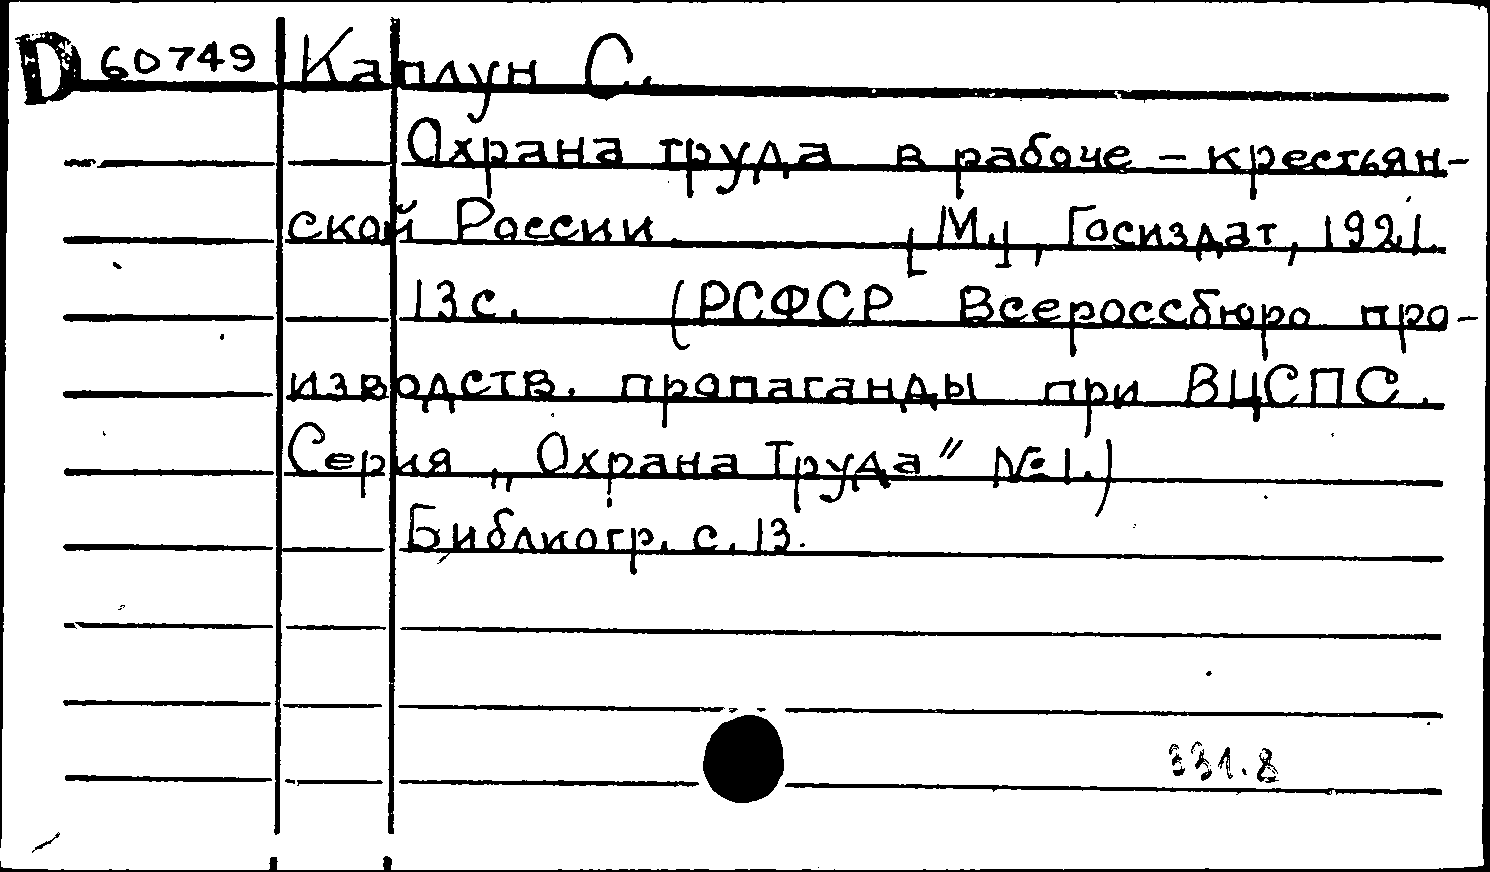 D 60749 Каплун С.
Охрана труда в рабоче-крестьян-
ской России. [М.], Госиздат, 1921.
13 с. (РСФСР Всероссбюро про-
изводств. пропаганды при ВЦСПС.
Серия „Охрана Труда" № 1.)
Библиогр. с. 13.
331.8